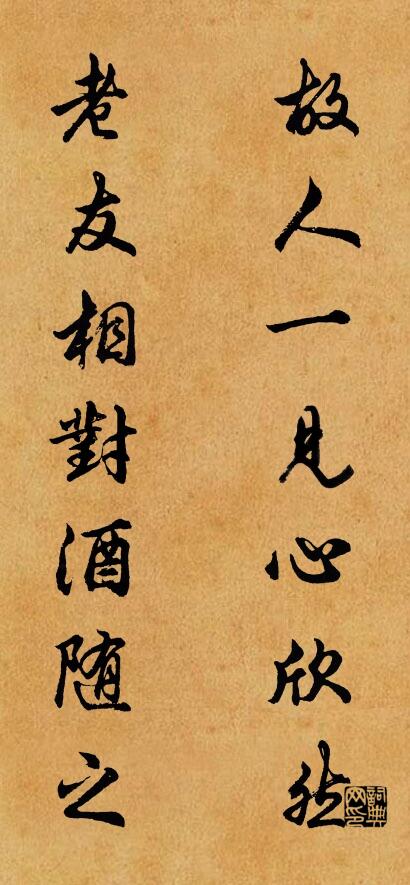 故人一見心欣然
老友相對酒随之
詞典網印